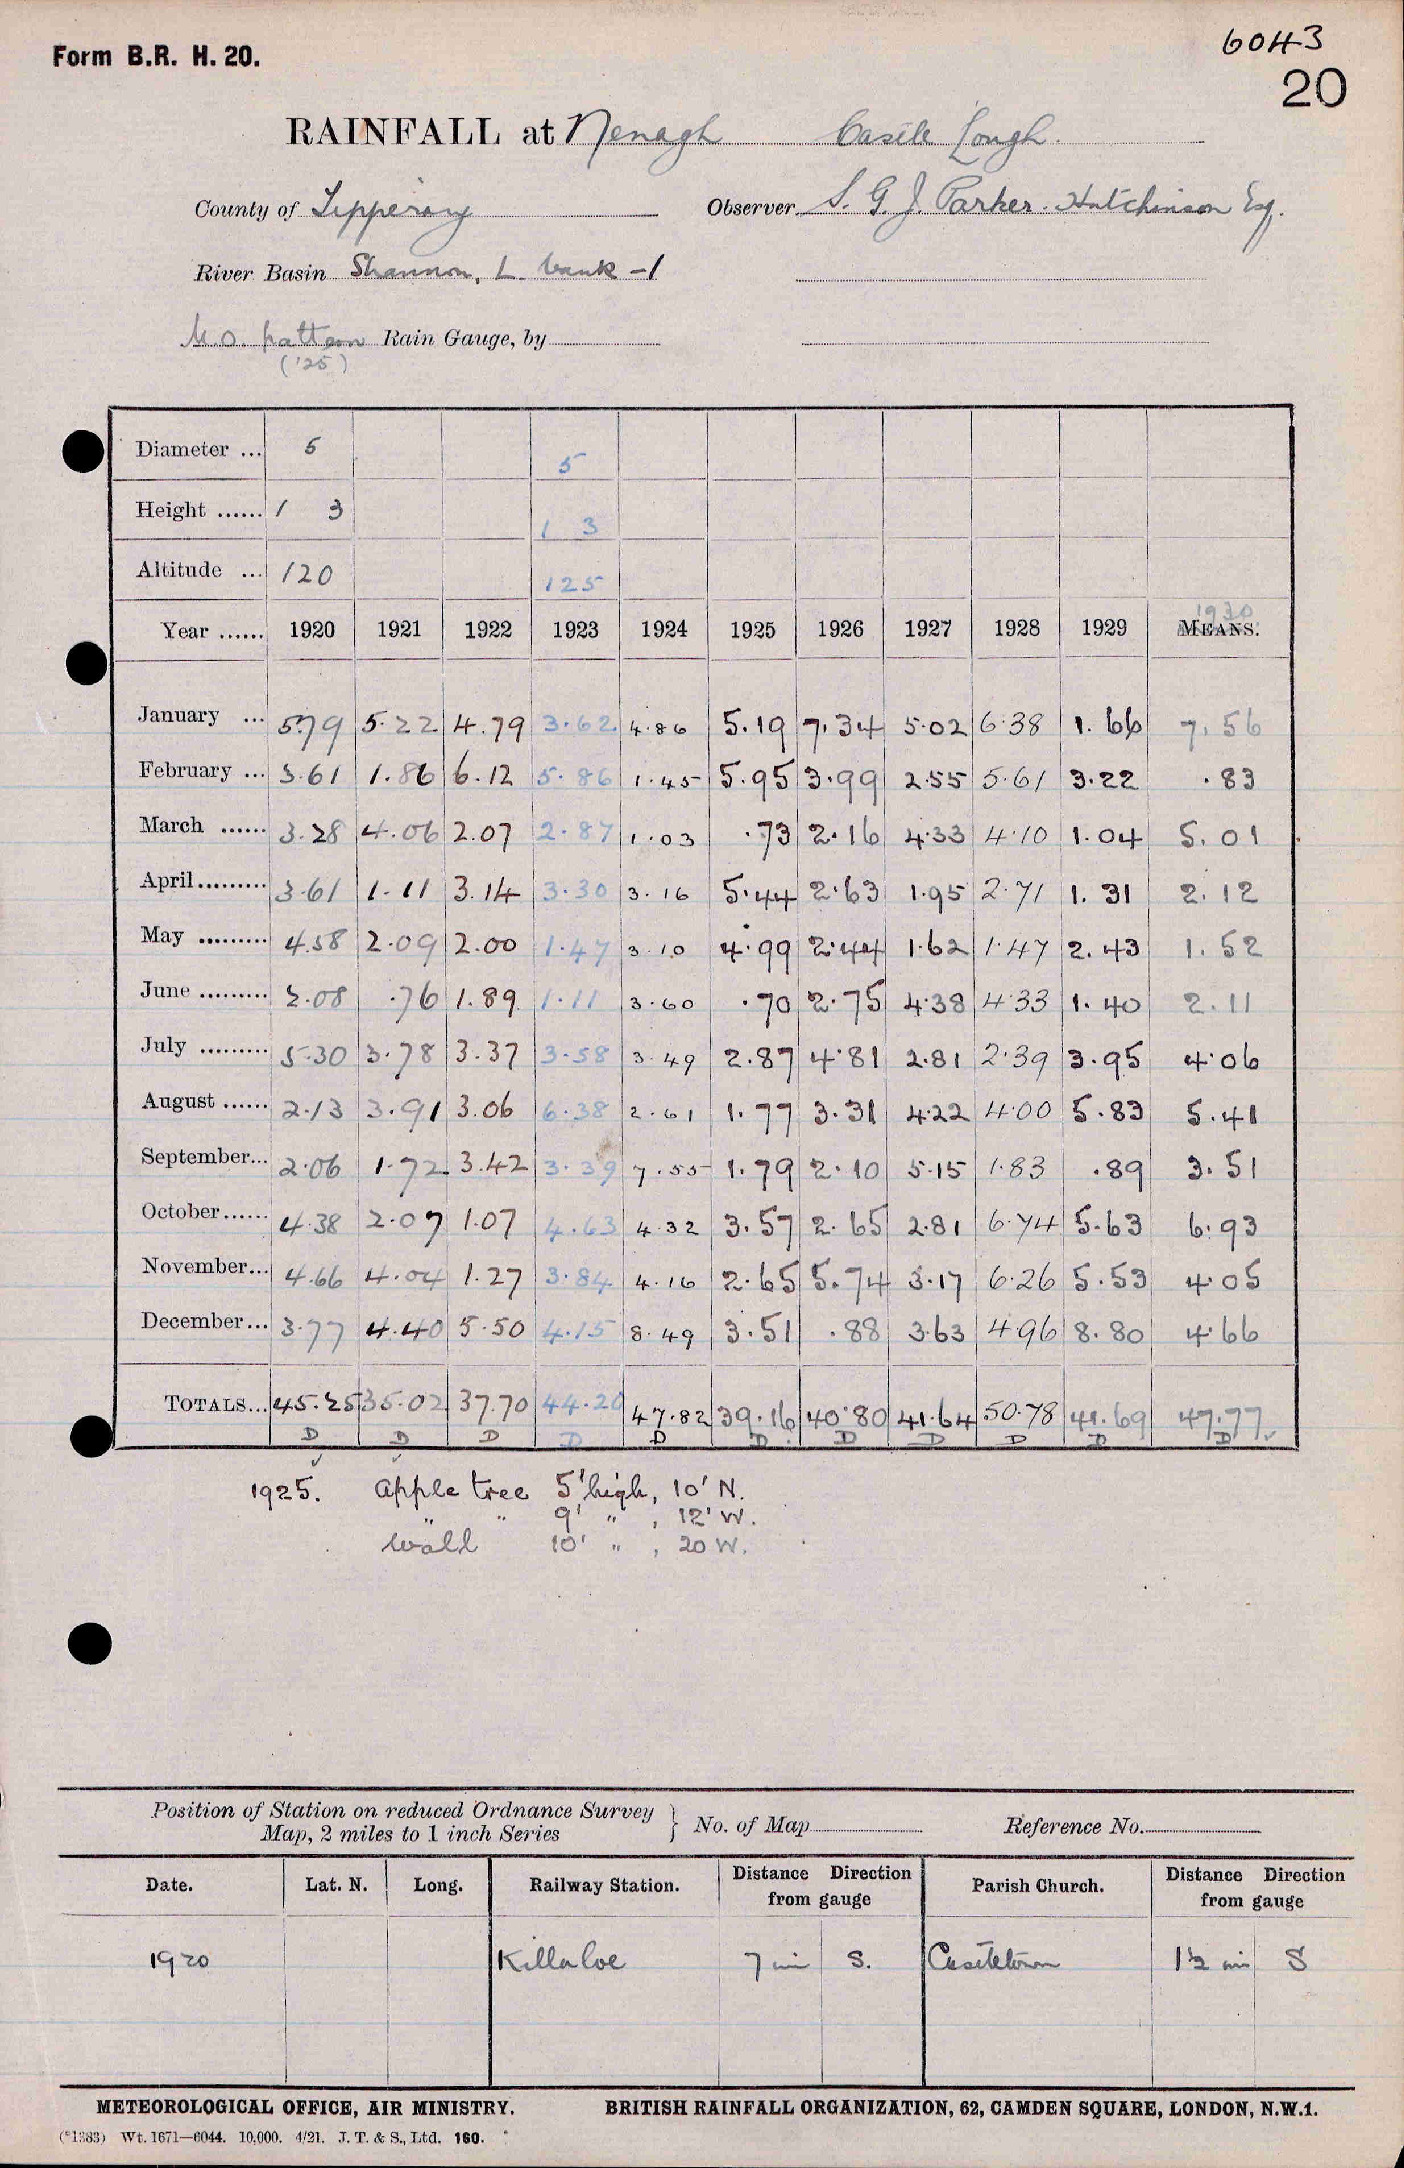 Form B.R. H. 20.
6043
20
RAINFALL at Nenagh Castle Lough.
County of Tipperary Observer S. G. J. Parker-Hutchinson Esq.
River Basin Shannon, L bank -1
M.O. pattern Rain Gauge, by
('25)
Diameter ... 5 5
Height ...... 1 3 1 3
Altitude ... 120 125
1930
Year ...... 1920 1921 1922 1923 1924 1925 1926 1927 1928 1929 MEANS.
January ... 5.79 5.22 4.79 3.62 4.86 5.19 7.34 5.02 6.38 1.66 7.56
February ... 3.61 1.86 6.12 5.86 1.45 5.95 3.99 2.55 5.61 3.22 .83
March ...... 3.28 4.06 2.07 2.87 1.03 .73 2.16 4.33 4.10 1.04 5.01
April......... 3.61 1.11 3.14 3.30 3.16 5.44 2.63 1.95 2.71 1.31 2.12
May ......... 4.58 2.09 2.00 1.47 3.10 4.99 2.44 1.62 1.47 2.43 1.52
June ......... 2.08 .76 1.89 1.11 3.60 .70 2.75 4.38 4.33 1.40 2.11
July ......... 5.30 3.78 3.37 3.58 3.49 2.87 4.81 2.81 2.39 3.95 4.06
August ...... 2.13 3.91 3.06 6.38 2.61 1.77 3.31 4.22 4.00 5.83 5.41
September... 2.06 1.72 3.42 3.39 7.55 1.79 2.10 5.15 1.83 .89 3.51
October...... 4.38 2.07 1.07 4.63 4.32 3.57 2.65 2.81 6.74 5.63 6.93
November... 4.66 4.04 1.27 3.84 4.16 2.65 5.74 3.17 6.26 5.53 4.05
December... 3.77 4.40 5.50 4.15 8.49 3.51 .88 3.63 4.96 8.80 4.66
TOTALS... 45.25 35.02 37.70 44.20 47.82 39.16 40.80 41.64 50.78 41.69 47.77
D D D D D D D D D D D
1925. apple tree 5' high, 10' N.
" " 9' " , 12' W.
Wall 10' " , 20 W.
Position of Station on reduced Ordnance Survey
Map, 2 miles to 1 inch Series } No. of Map Reference No.
Date. Lat. N. Long. Railway Station. Distance Direction from gauge Parish Church. Distance Direction from gauge
1920 Killaloe 7 mi S. Castletown 1½ mi S
METEOROLOGICAL OFFICE, AIR MINISTRY. BRITISH RAINFALL ORGANIZATION, 62, CAMDEN SQUARE, LONDON, N.W.1.
(*1383) Wt. 1671—6044. 10,000. 4/21. J. T. & S., Ltd. 160.